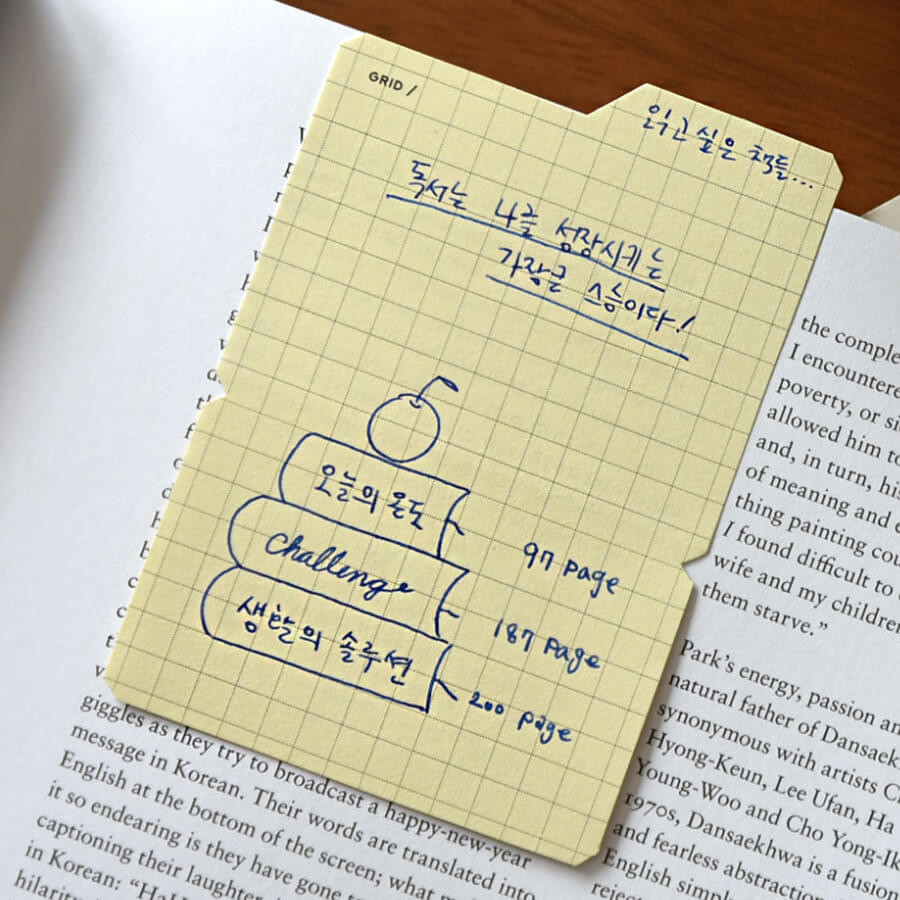 GRID /
읽고 싶은 책들...
독서는 나를 성장시키는
가장큰 스승이다!
오늘의 온도
97 page
Challenge
187 page
생활의 솔루션
200 page
giggles as they try to broadcast a happy-new-year
message in Korean. Their words are translated into
English at the bottom of the screen; what
it so endearing is they have gone
captioning their laughter
in Korean: "Ha
hilarity
the comple
I encountere
poverty, or si
allowed him to
and, in turn, his
of meaning and e
thing painting cou
I found difficult to
wife and my children
them starve."
Park's energy, passion an
natural father of Dansaek
synonymous with artists C
Hyong-Keun, Lee Ufan, Ha
Young-Woo and Cho Yong-Ik
1970s, Dansaekhwa is a fusion
and fearless abstraction
English simpl
rejec